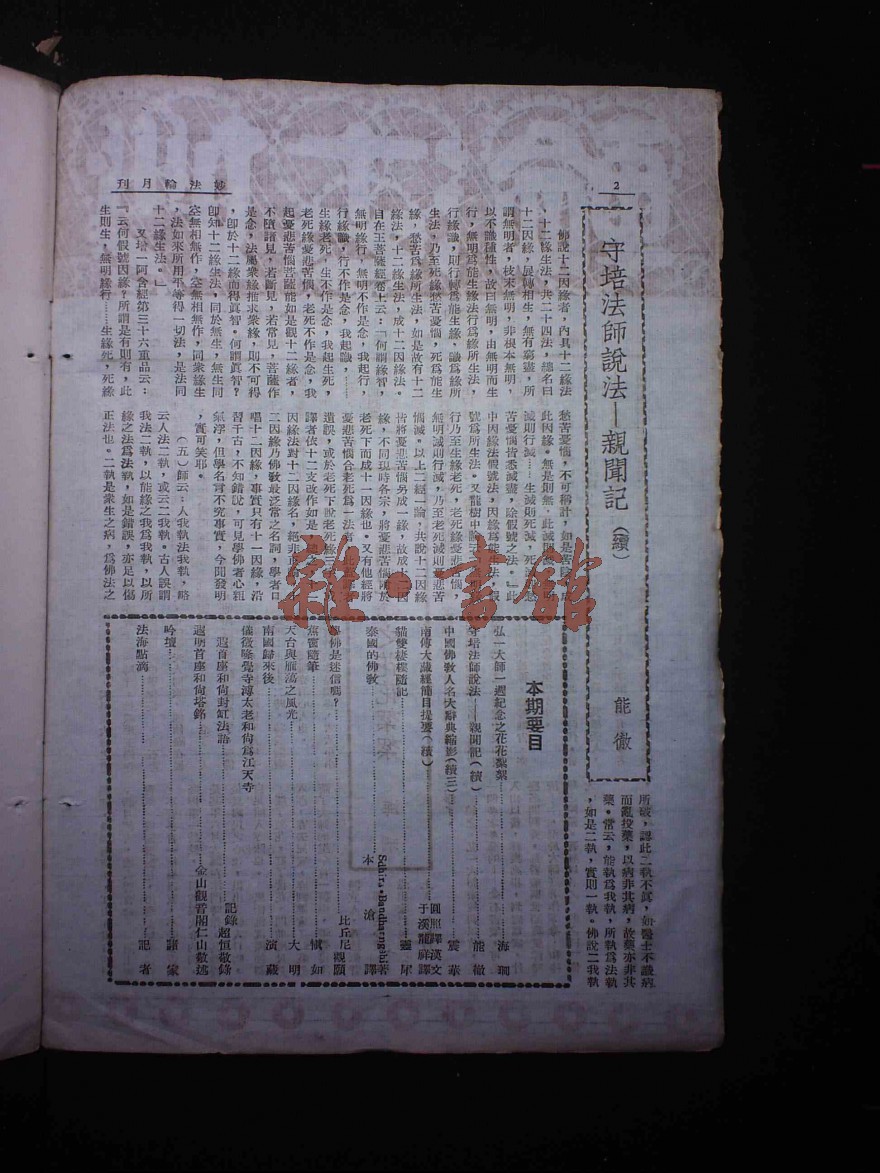 2
妙法輪月刊
守培法師說法—親聞記（續）
能徹
佛說十二因緣者，內具十二緣法
，十二緣生法，共二十四法，總名曰
十二因緣，展轉相生，無有窮盡，所
謂無明者，枝末無明，非根本無明，
以不識種性，故曰無明，由無明而生
行，無明為能生緣法行為緣所生法，
行緣識，則行轉為能生緣，識為緣所
生法，乃至死緣愁苦憂惱，死為能生
緣，愁苦為緣所生法，如是故有十二
緣法，十二緣生法，成十二因緣法。
自在王菩薩經卷上云：「何謂緣智，
無明緣行，無明不作是念，我起行，
行緣識，行不作是念，我起識，……
生緣老死，生不作是念，我起生死，
老死緣憂悲苦惱，老死不作是念，我
起憂悲苦惱菩薩能如是觀十二緣者，
不墮諸見，若斷見，若常見，菩薩作
是念，法屬衆緣推求衆緣，則不可得
，卽於十二緣而得眞智。何謂眞智？
卽知十二緣生法，同於無生，無生同
空無相無作，空無相無作，同衆緣生
，法如來所用平等得一切法，是法同
十二緣生法。」
又增一阿含經第三十六重品云：
『云何假號因緣？所謂是有則有，此
生則生，無明緣行……生緣死，死緣
愁苦憂惱，不可稱計，如是苦陰，成
此因緣。無是則無，此滅則滅，無明
滅則行滅……生滅則死滅，死滅則愁
苦憂惱皆悉滅盡，除假號之法。』此
中因緣法假號法，因緣為能生法，假
號為所生法。又龍樹中論云：無明緣
行乃至生緣老死，老死緣憂悲苦惱，
無明滅則行滅，乃至老死滅則憂悲苦
惱滅。以上二經一論，共說十二因緣
皆將憂悲苦惱另成一緣，故成十二因
緣，不同現時各宗，將憂悲苦惱附於
老死下而成十一因緣也。又有他經將
憂悲苦惱合老死為一法者，
遺誤，或於老死下說老死緣三
譯者依十二支改作如是
因緣法對十二因緣名，絕非
二因緣乃佛敎最泛常之名詞，學者口
唱十二因緣，事實只有十一因緣，沿
習千古，不知錯誤，可見學佛者心粗
氣浮，但學名言不究事實，今聞發明
，實可笑耶。
（五）師云：人我執法我執，略
云人法二執，或云二我執。古人誤謂
我法二執，以能緣之我為我執，以所
緣之法為法執，如是錯誤，亦足以傷
正法也。二執是衆生之病，為佛法之
所破，認此二執不眞，如醫士不識病
而亂投藥，以病非其病，故藥亦非其
藥。常云，能執為我執，所執為法執
，如是二執，實則一執。佛說二我執
本期要目
弘一大師一週紀念之花花絮絮……海珊
守培法師說法——親聞記（續）……能徹
中國佛敎人名大辭典縮影（續三）……震華
南傳大藏經簡目提要（續）……圓照譯漢文 于溪龍祥譯
貓雙棲樓隨記……靈犀
泰國的佛敎……著 本滄譯
學佛是迷信嗎？……比丘尼觀願
蕉窗隨筆……慎如
天台與雁蕩之風光……大明
南國歸來後……演藏
儀徵隆覺寺溥太老和尙為江天寺
退首座和尙封缸法語……記錄超恒敬錄
超明首座和尙塔銘……金山觀音閣仁山敬述
吟壇……諸家
法海點滴……記者
雜·書館